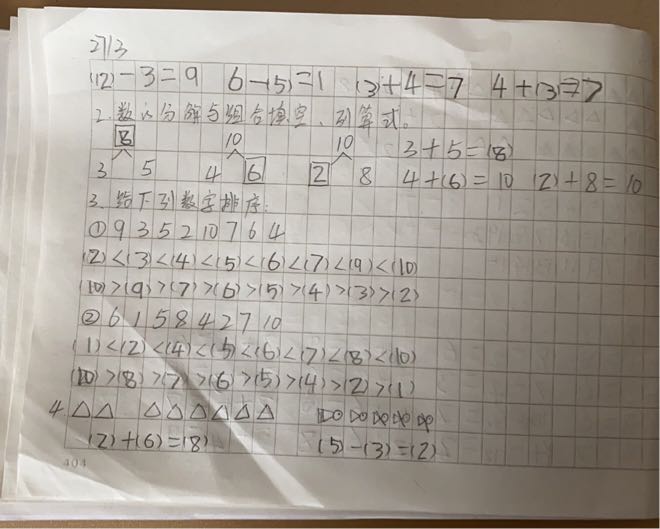 27/3
(12)-3=9 6-(5)=1 (3)+4=7 4+(3)=7
2.数的分解与组合填空、列算式。
8 10 10 3+5=(8)
3 5 4 6 2 8 4+(6)=10 (2)+8=10
3、给下列数字排序:
①9 3 5 2 10 7 6 4
(2)<(3)<(4)<(5)<(6)<(7)<(9)<(10)
(10)>(9)>(7)>(6)>(5)>(4)>(3)>(2)
②6 1 5 8 4 2 7 10
(1)<(2)<(4)<(5)<(6)<(7)<(8)<(10)
(10)>(8)>(7)>(6)>(5)>(4)>(2)>(1)
4 △△ △△△△△△
(2)+(6)=(8) (5)-(3)=(2)
404